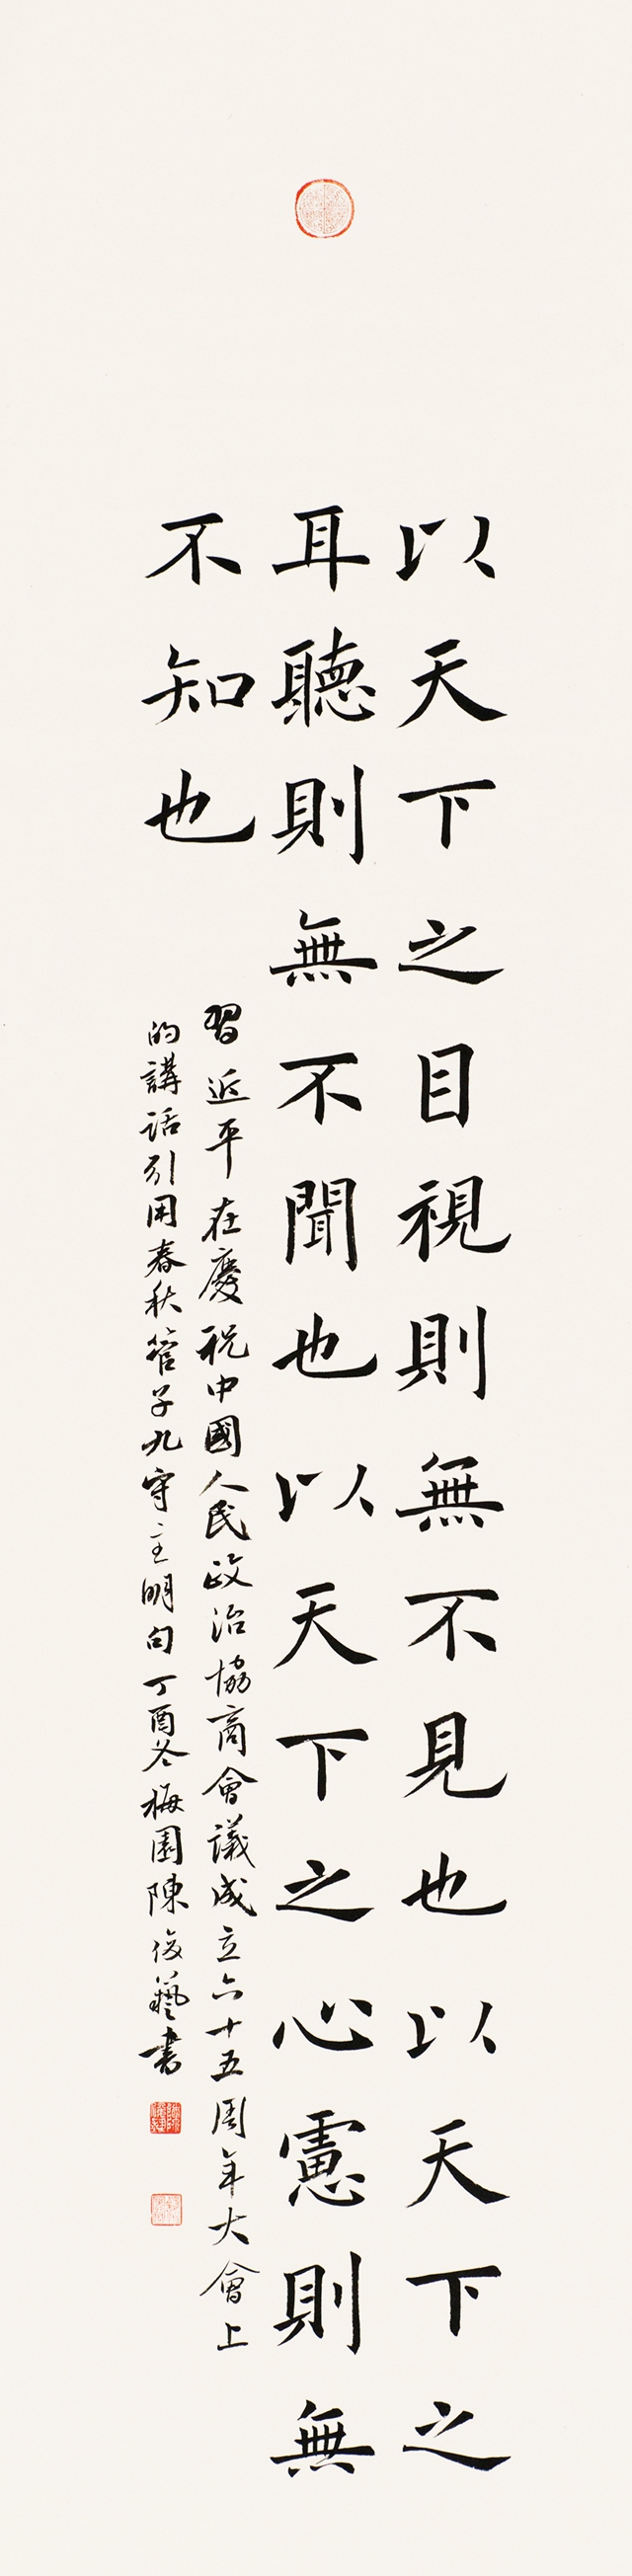 以天下之目視則無不見也以天下之
耳聽則無不聞也以天下之心慮則無
不知也
習近平在慶祝中國人民政治協商會議成立六十五周年大會上
的講話引用春秋管子九守主明句丁酉冬梅園陳俊藝書